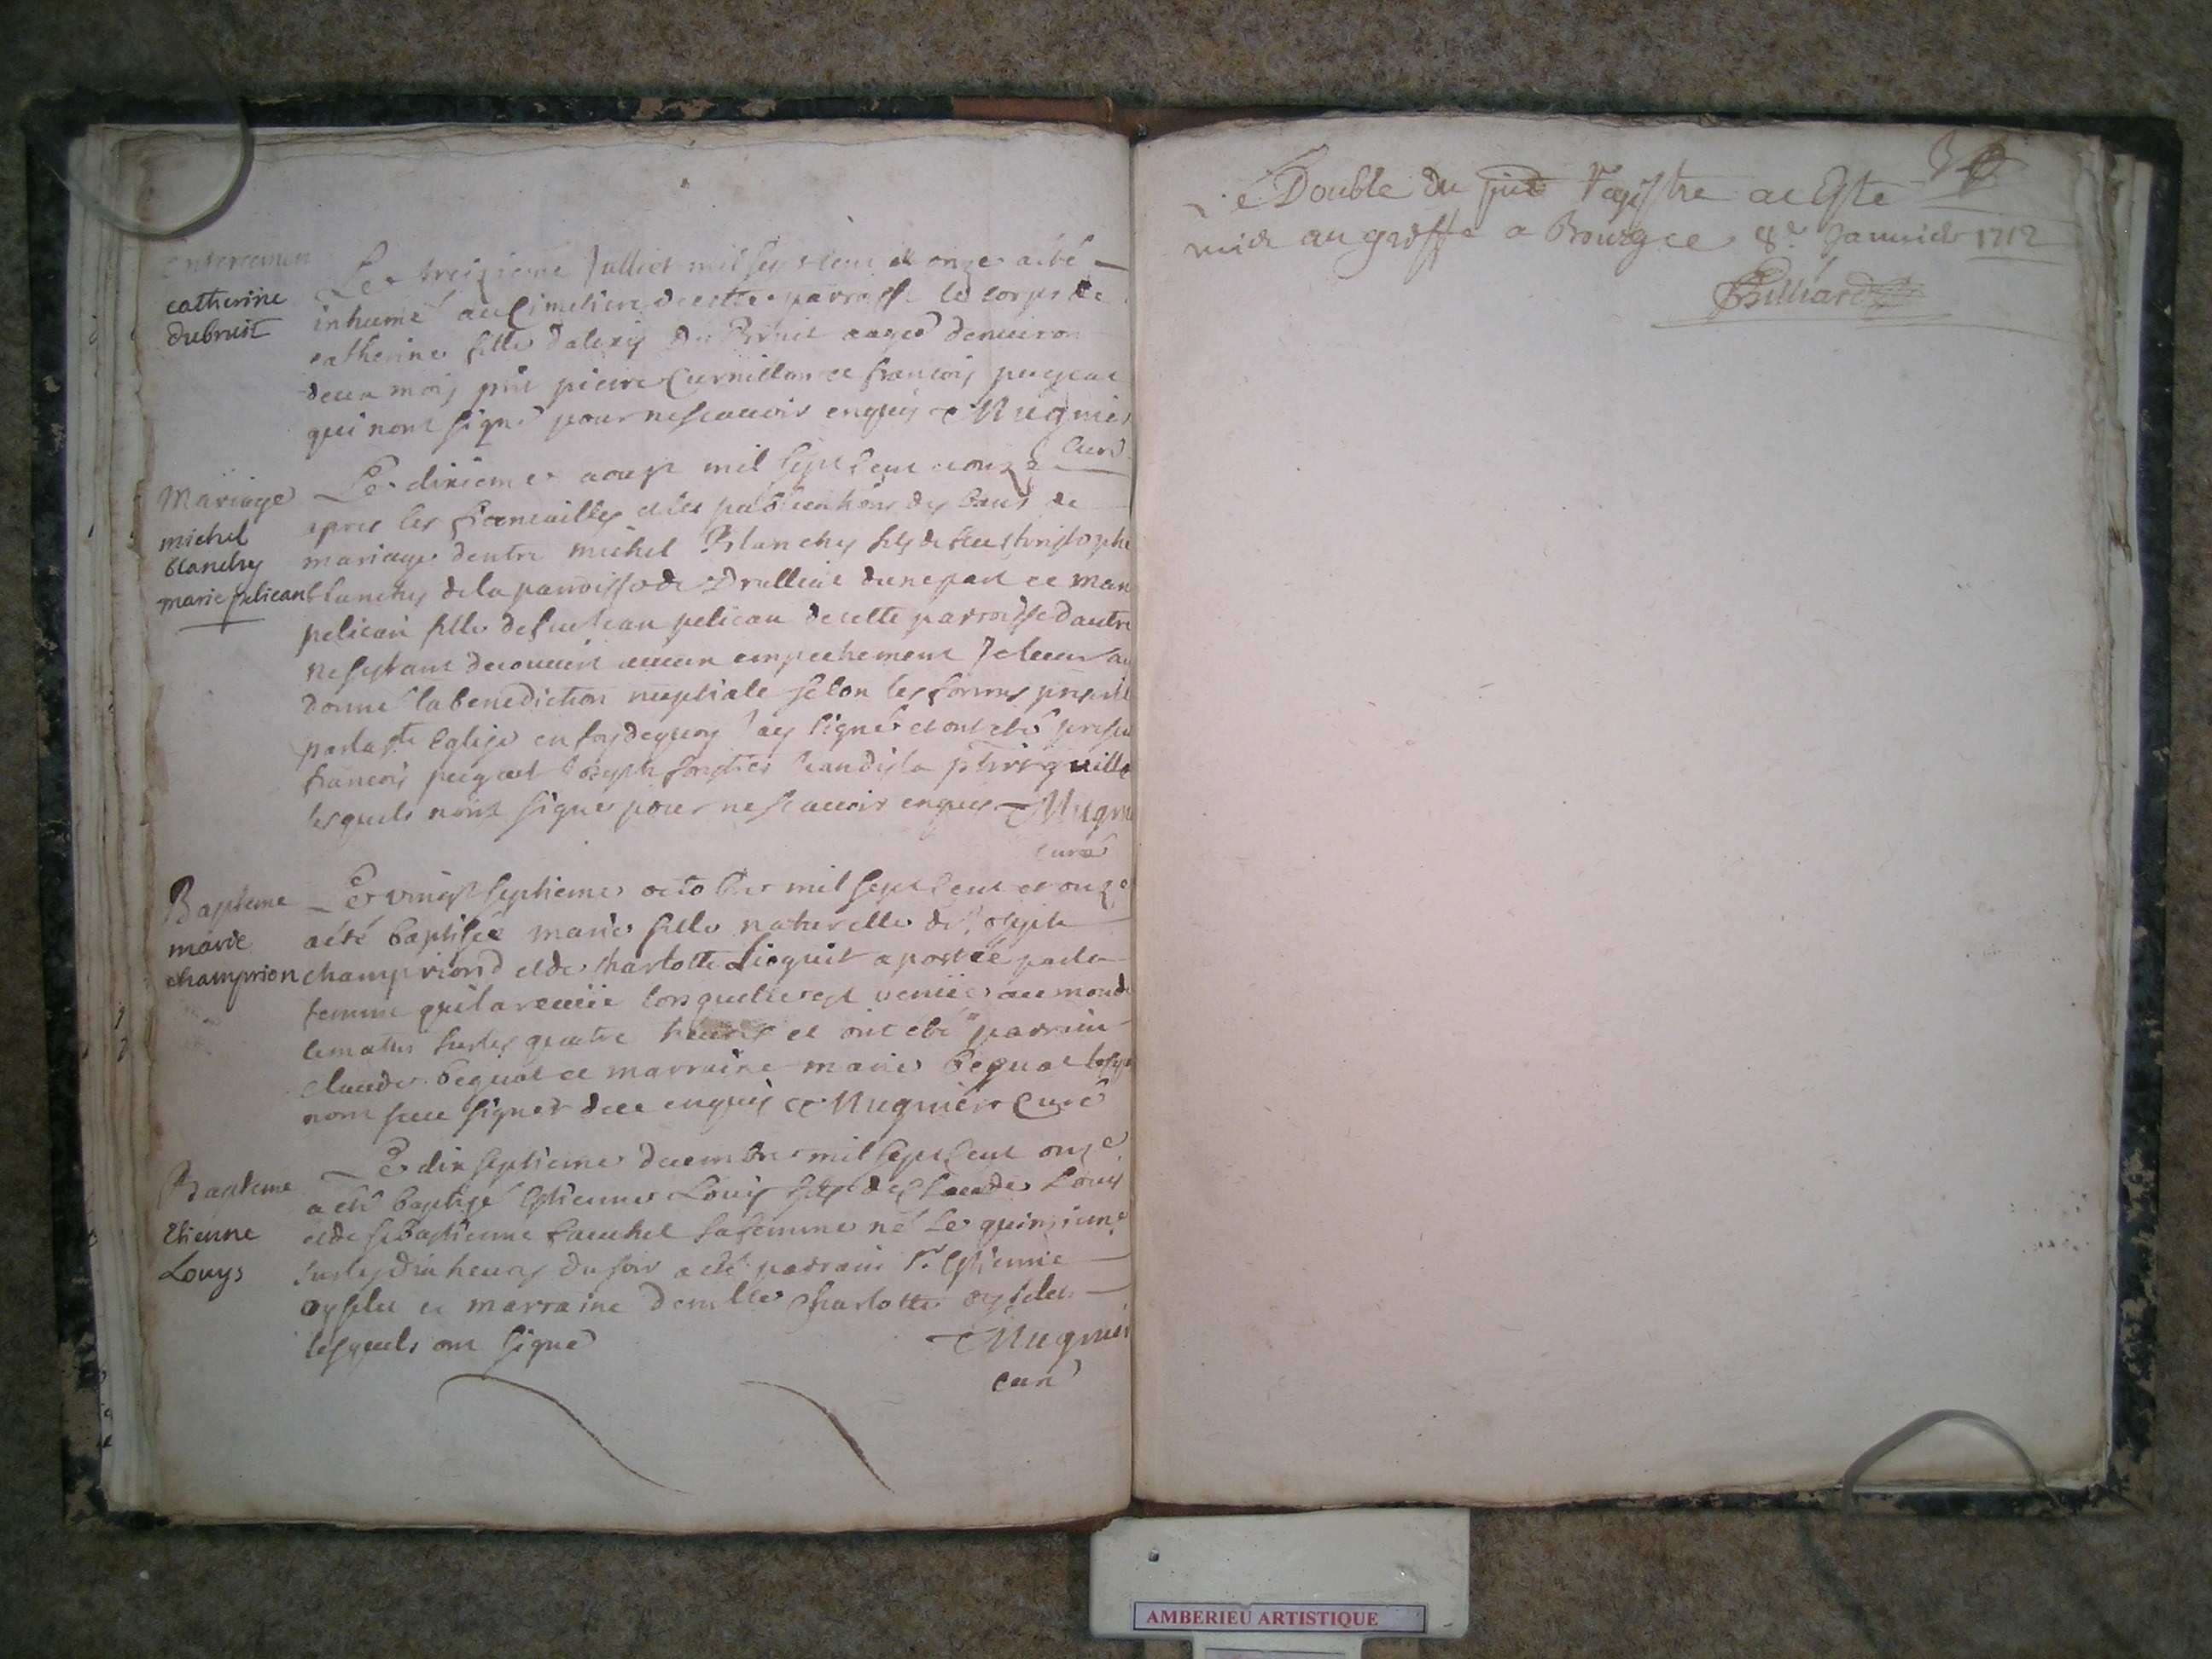 Enterremen
catherine
dubruit
Le treizieme Julliet mil sept cent et onze a été
inhumé au Cimetiere de cette parroisse le corps de
catherine fille d'alexis Du Bruit aagée denuiron
deux mois pnt pierre Curnillon et francois pugeat
qui n'ont signé pour ne scauoir enquis Mugnier
Curé
Mariage
michel
blanchy
marie pelican
Le dixieme aoust mil sept cent onze
apres les fiancailles et les publications des bans de
mariage dentre michel Blanchy fils de feu christophe
blanchy de la parroisse de Druillat dune part et Marie
pelican fille de feu Jean pelican de cette parroisse dautre
ne sestant decouuert aucun empechement Je leur ai
donné la benediction nuptiale selon les formes prescrit
par la ste Eglise en foy de quoy J'ay signé et ont été presen
francois pugeat Joseph Jean
lesquels n'ont signé pour ne scauoir enquis Mugnier
curé
Bapteme
marie
champrion
Le vingt septieme octobre mil sept cent et onze
a été baptisée marie fille naturelle de Joseph
champriond et de charlotte Lioquit aportée par la
femme qui la receüe lorsquelle est venüe au monde
le matin sur les quatre heures et ont été parrain
claude bequat et marraine marie bequat lesq
nont sceu signer de ce enquis Mugnier Curé
Bapteme
Etienne
Louys
Le dix septieme decembre mil sept cent onze
a été baptisé Estienne Louis fils de claude Louis
et de sebastienne sa femme né Le quinzieme
sur les dix heures du soir a été parrain Sr Estienne
oyselet et marraine demlle Charlotte oyselet
lesquels ont signé Mugnier
curé
Le Double du pnt Registre a esté
mis au greffe a Bourg ce 8e Januier 1712
Billiard
AMBERIEU ARTISTIQUE